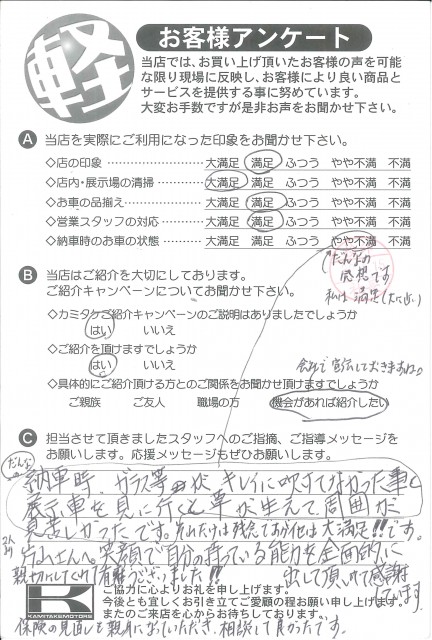 軽
お客様アンケート
当店では、お買い上げ頂いたお客様の声を可能
な限り現場に反映し、お客様により良い商品と
サービスを提供する事に努めています。
大変お手数ですが是非お声をお聞かせ下さい。
A 当店を実際にご利用になった印象をお聞かせ下さい。
◇店の印象 大満足 満足 ふつう やや不満 不満
◇店内・展示場の清掃 大満足 満足 ふつう やや不満 不満
◇お車の品揃え 大満足 満足 ふつう やや不満 不満
◇営業スタッフの対応 大満足 満足 ふつう やや不満 不満
◇納車時のお車の状態 大満足 満足 ふつう やや不満 不満
だんなの
感想です
私は満足
B 当店はご紹介を大切にしてあります。
ご紹介キャンペーンについてお聞かせ下さい。
◇カミタケご紹介キャンペーンのご説明はありましたでしょうか
はい いいえ
◇ご紹介を頂けますでしょうか
はい いいえ
会社で宣伝しておきますね。
◇具体的にご紹介頂ける方とのご関係をお聞かせ頂けますでしょうか
ご親族 ご友人 職場の方 機会があれば紹介したい
C 担当させて頂きましたスタッフへのご指摘、ご指導メッセージを
お願いします。応援メッセージもぜひお願いします。
だんな
納車時、ガラス等が、キレイに吹けてなかった事と
展示車を見に行くと草が生えて周囲が
見苦しかったです。それだけは残念であり他は大満足!!です。
片山さんへ。笑顔で自分の持っている能力を全面的に
親切にしてくれて有難うございました!! 出して頂いれて感謝
しています。
KAMITAKEMOTORS
ご協力に心よりお礼を申し上げます。
今後とも宜しくお引き立てご愛顧の程お願い申し上げます。
またのご来店を心からお待ちしております。
保険の見直しも親身になっていただき、相談して良かったです。